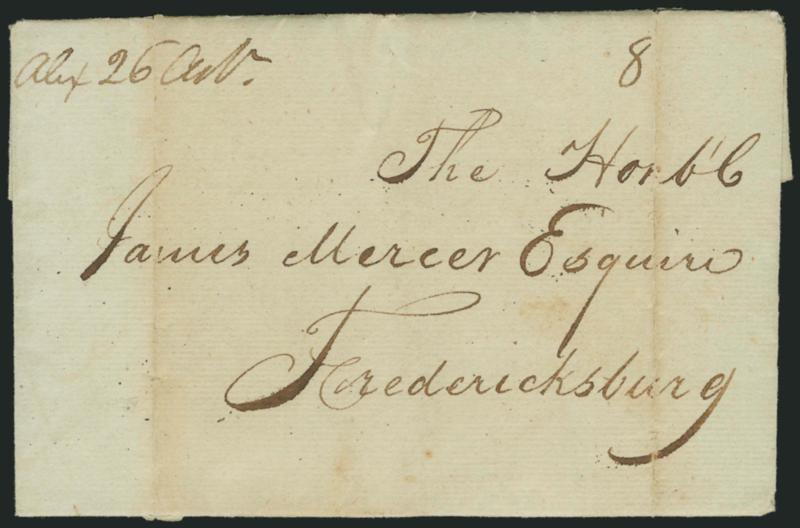 Alex 26 8
The Honb'l
James Mercer Esquire
Fredericksburg